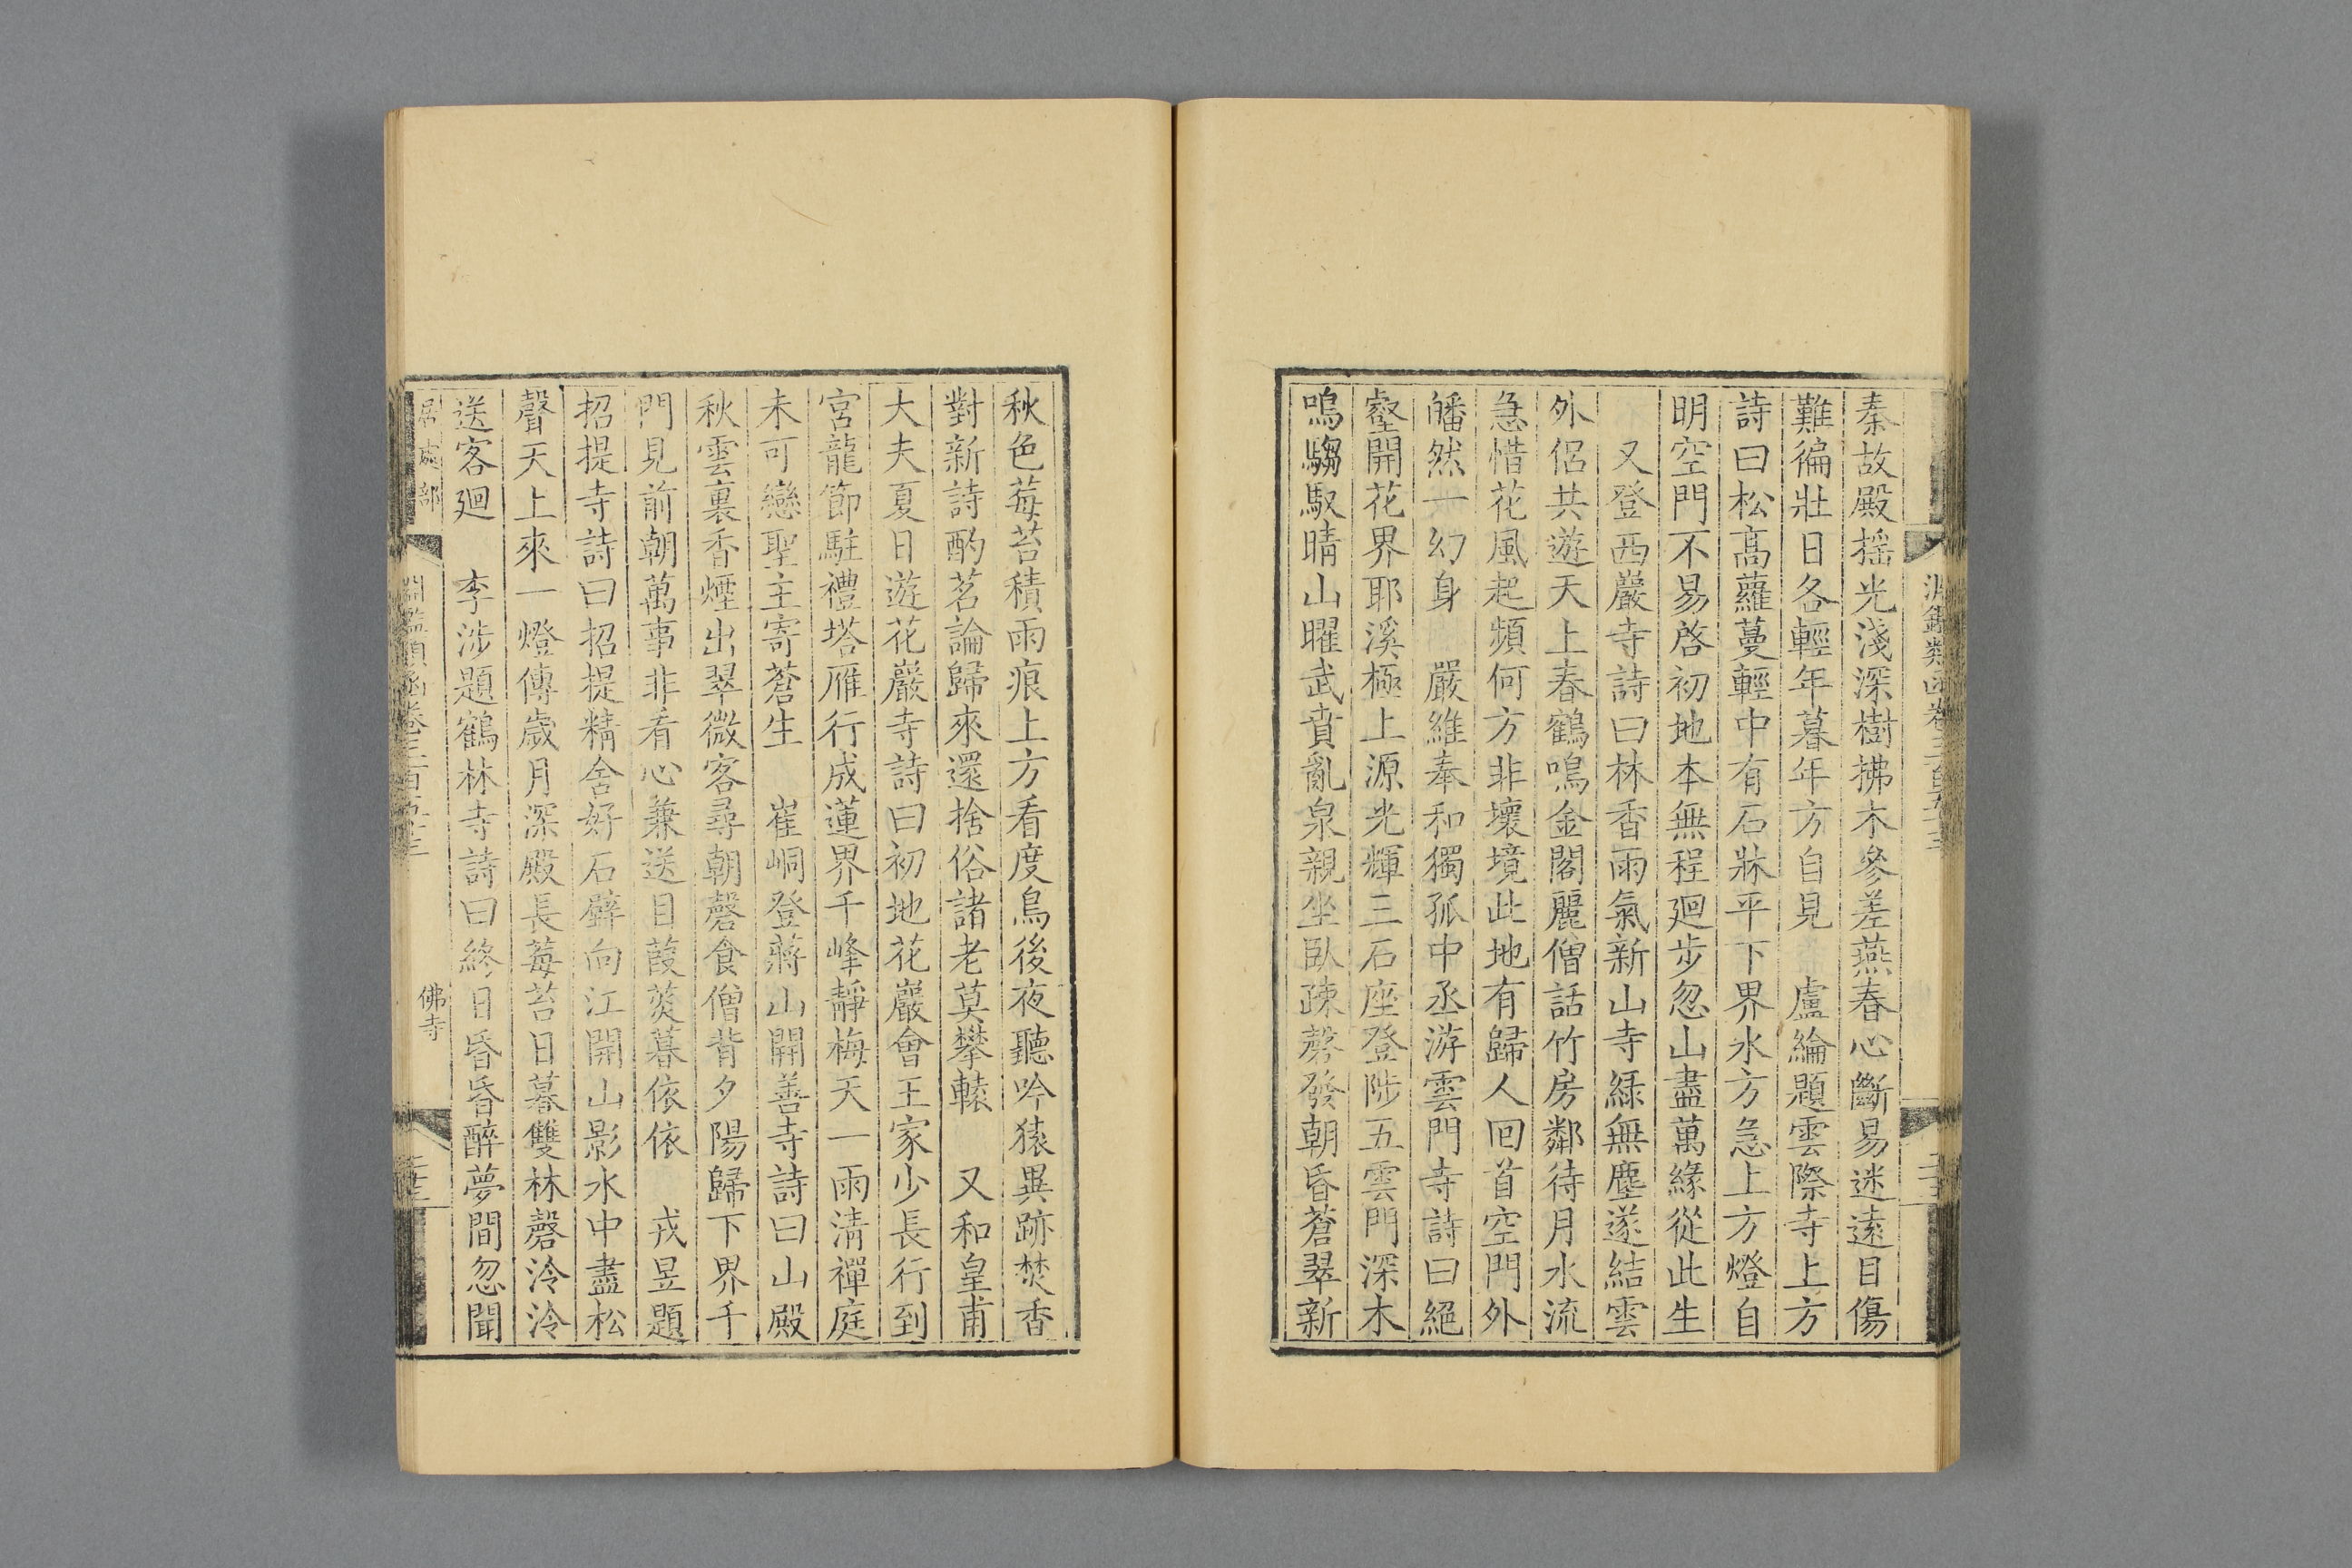 秦故殿揺光淺深樹拂木參差燕春心斷易迷遠目傷
難徧壯日各輕年暮年方自見　盧綸題雲際寺上方
詩曰松高蘿蔓輕中有石牀平下界水方急上方燈自
明空門不易啓初地本無程廻步忽山盡萬緣從此生
又登西巖寺詩曰林香雨氣新山寺緑無塵遂結雲
外侶共遊天上春鶴鳴金閣麗僧話竹房鄰待月水流
急惜花風起頻何方非壞境此地有歸人回首空門外
皤然一幻身　嚴維奉和獨孤中丞游雲門寺詩曰絕
壑開花界耶溪極上源光輝三石座登陟五雲門深木
鳴騶馭晴山曜武賁亂泉親坐臥疎磬發朝昏蒼翠新
秋色莓苔積雨痕上方看度鳥後夜聽吟猿異跡焚香
對新詩酌茗論歸來還捨俗諸老莫攀轅　又和皇甫
大夫夏日遊花巖寺詩曰初地花巖會王家少長行到
宮龍節駐禮塔雁行成蓮界千峰靜梅天一雨淸禪庭
未可戀聖主寄蒼生　崔峒登蔣山開善寺詩曰山殿
秋雲裏香煙出翠微客尋朝磬食僧背夕陽歸下界千
門見前朝萬事非看心兼送目葭菼暮依依　戎昱題
招提寺詩曰招提精舍好石壁向江開山影水中盡松
聲天上來一燈傳歲月深殿長莓苔日暮雙林磬泠泠
送客廻　李涉題鶴林寺詩曰終日昏昏醉夢間忽聞
居處部
淵鑑類函卷三百五十三
佛寺